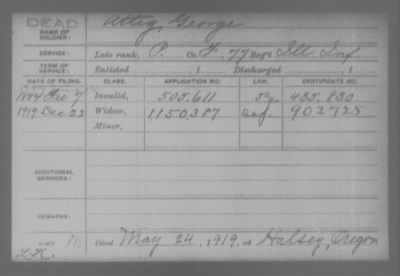 DEAD
NAME OF SOLDIER: Uttig, George
SERVICE: Late rank, P. Co. F, 77 Reg't Ill. Inf.
TERM OF SERVICE: Enlisted , 1 Discharged , 1
DATE OF FILING. CLASS. APPLICATION NO. LAW. CERTIFICATE NO.
1884 Feb 7 Invalid, 505,611 435,830
1919 Dec 22 Widow, 1150,387 902725
Minor,
ADDITIONAL SERVICES:
REMARKS:
Died May 24, 1919, at Halsey, Oregon